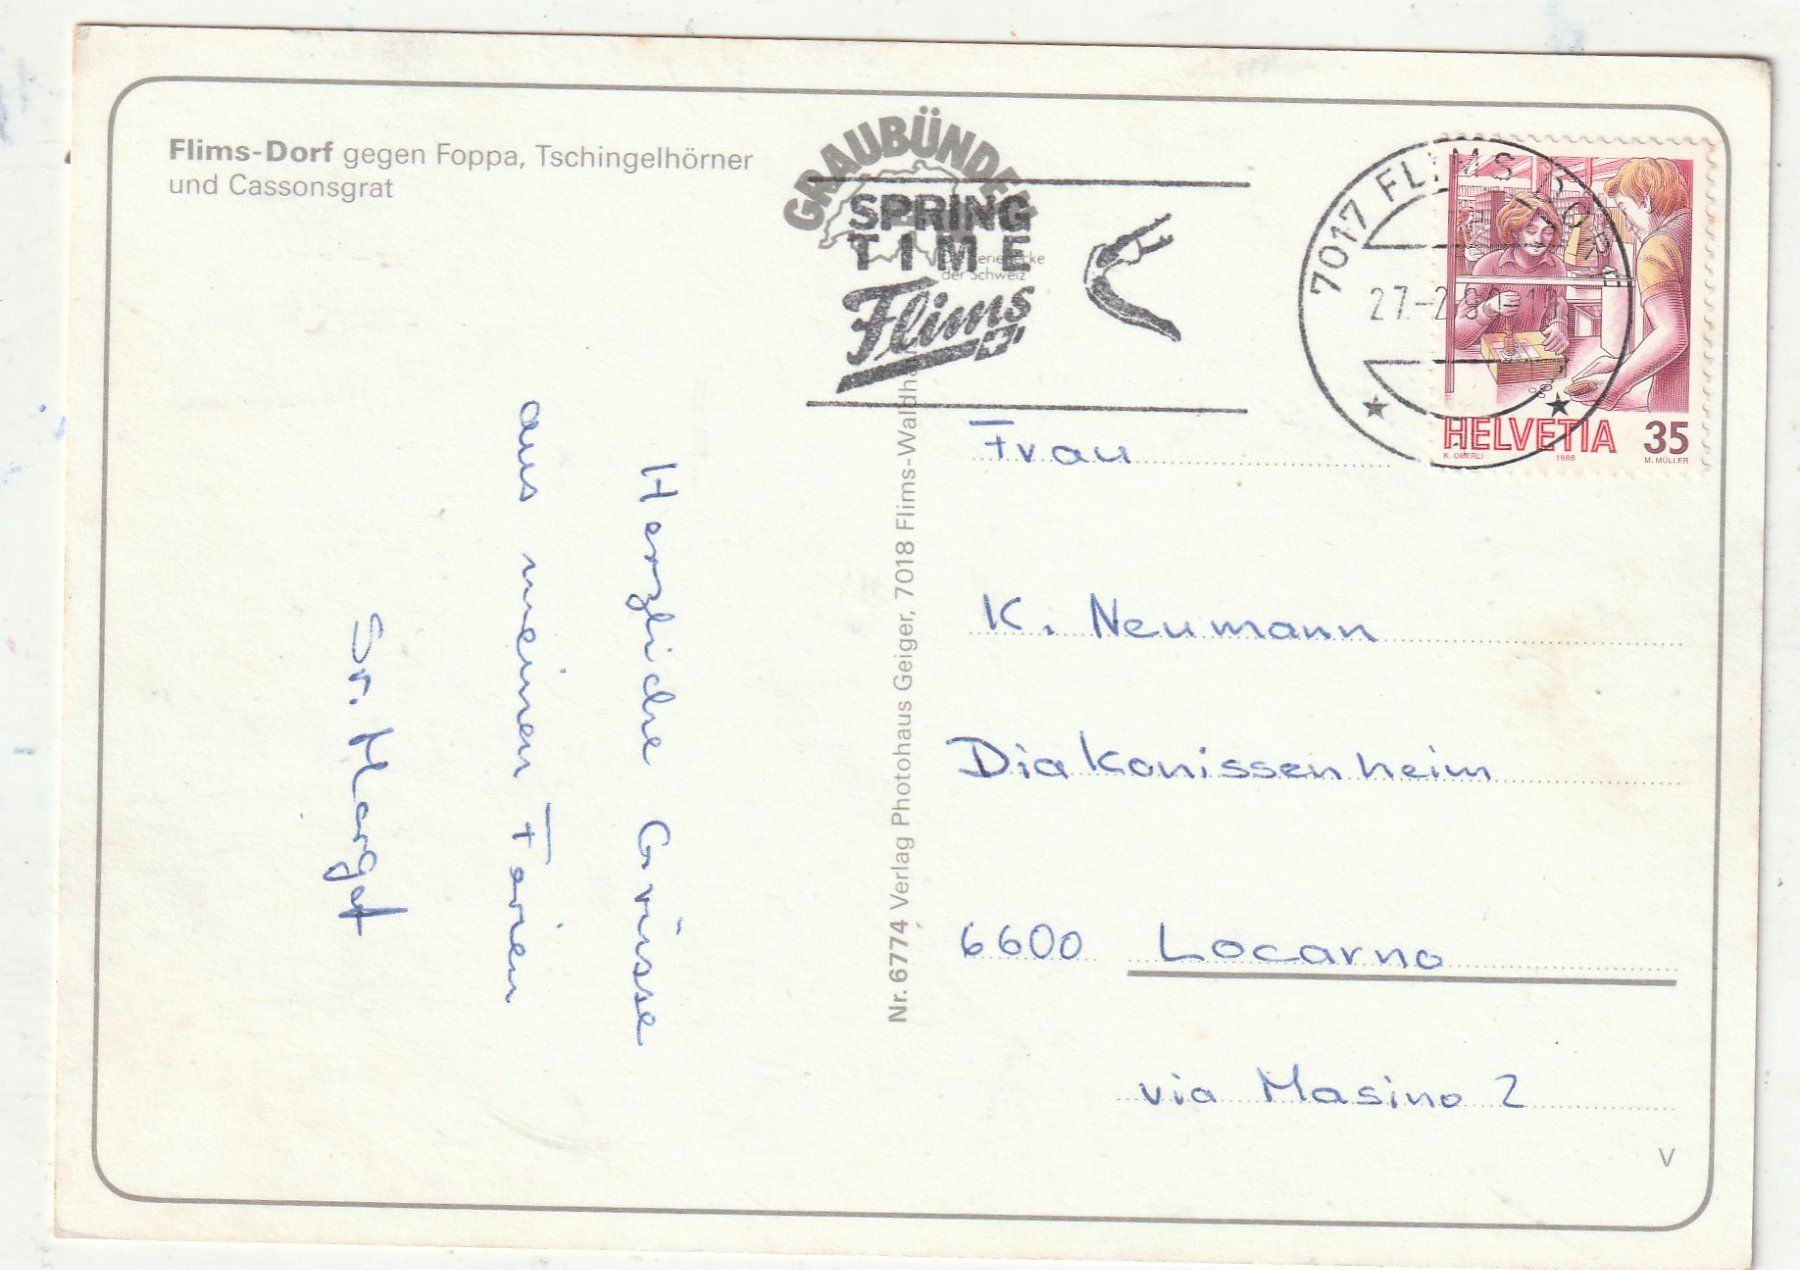 Flims-Dorf gegen Foppa, Tschingelhörner
und Cassonsgrat
GRAUBÜNDEN
SPRING
TIME
der Schweiz
Flims
7017 FLIMS DORF
27.-2.
HELVETIA 35
K. OBERLI 1986 M. MÜLLER
Herzliche Grüsse
aus meinen Ferien
Sr. Margat
Nr. 6774 Verlag Photohaus Geiger, 7018 Flims-Waldh
Frau
K. Neumann
Diakonissenheim
6600 Locarno
via Masino 2
V